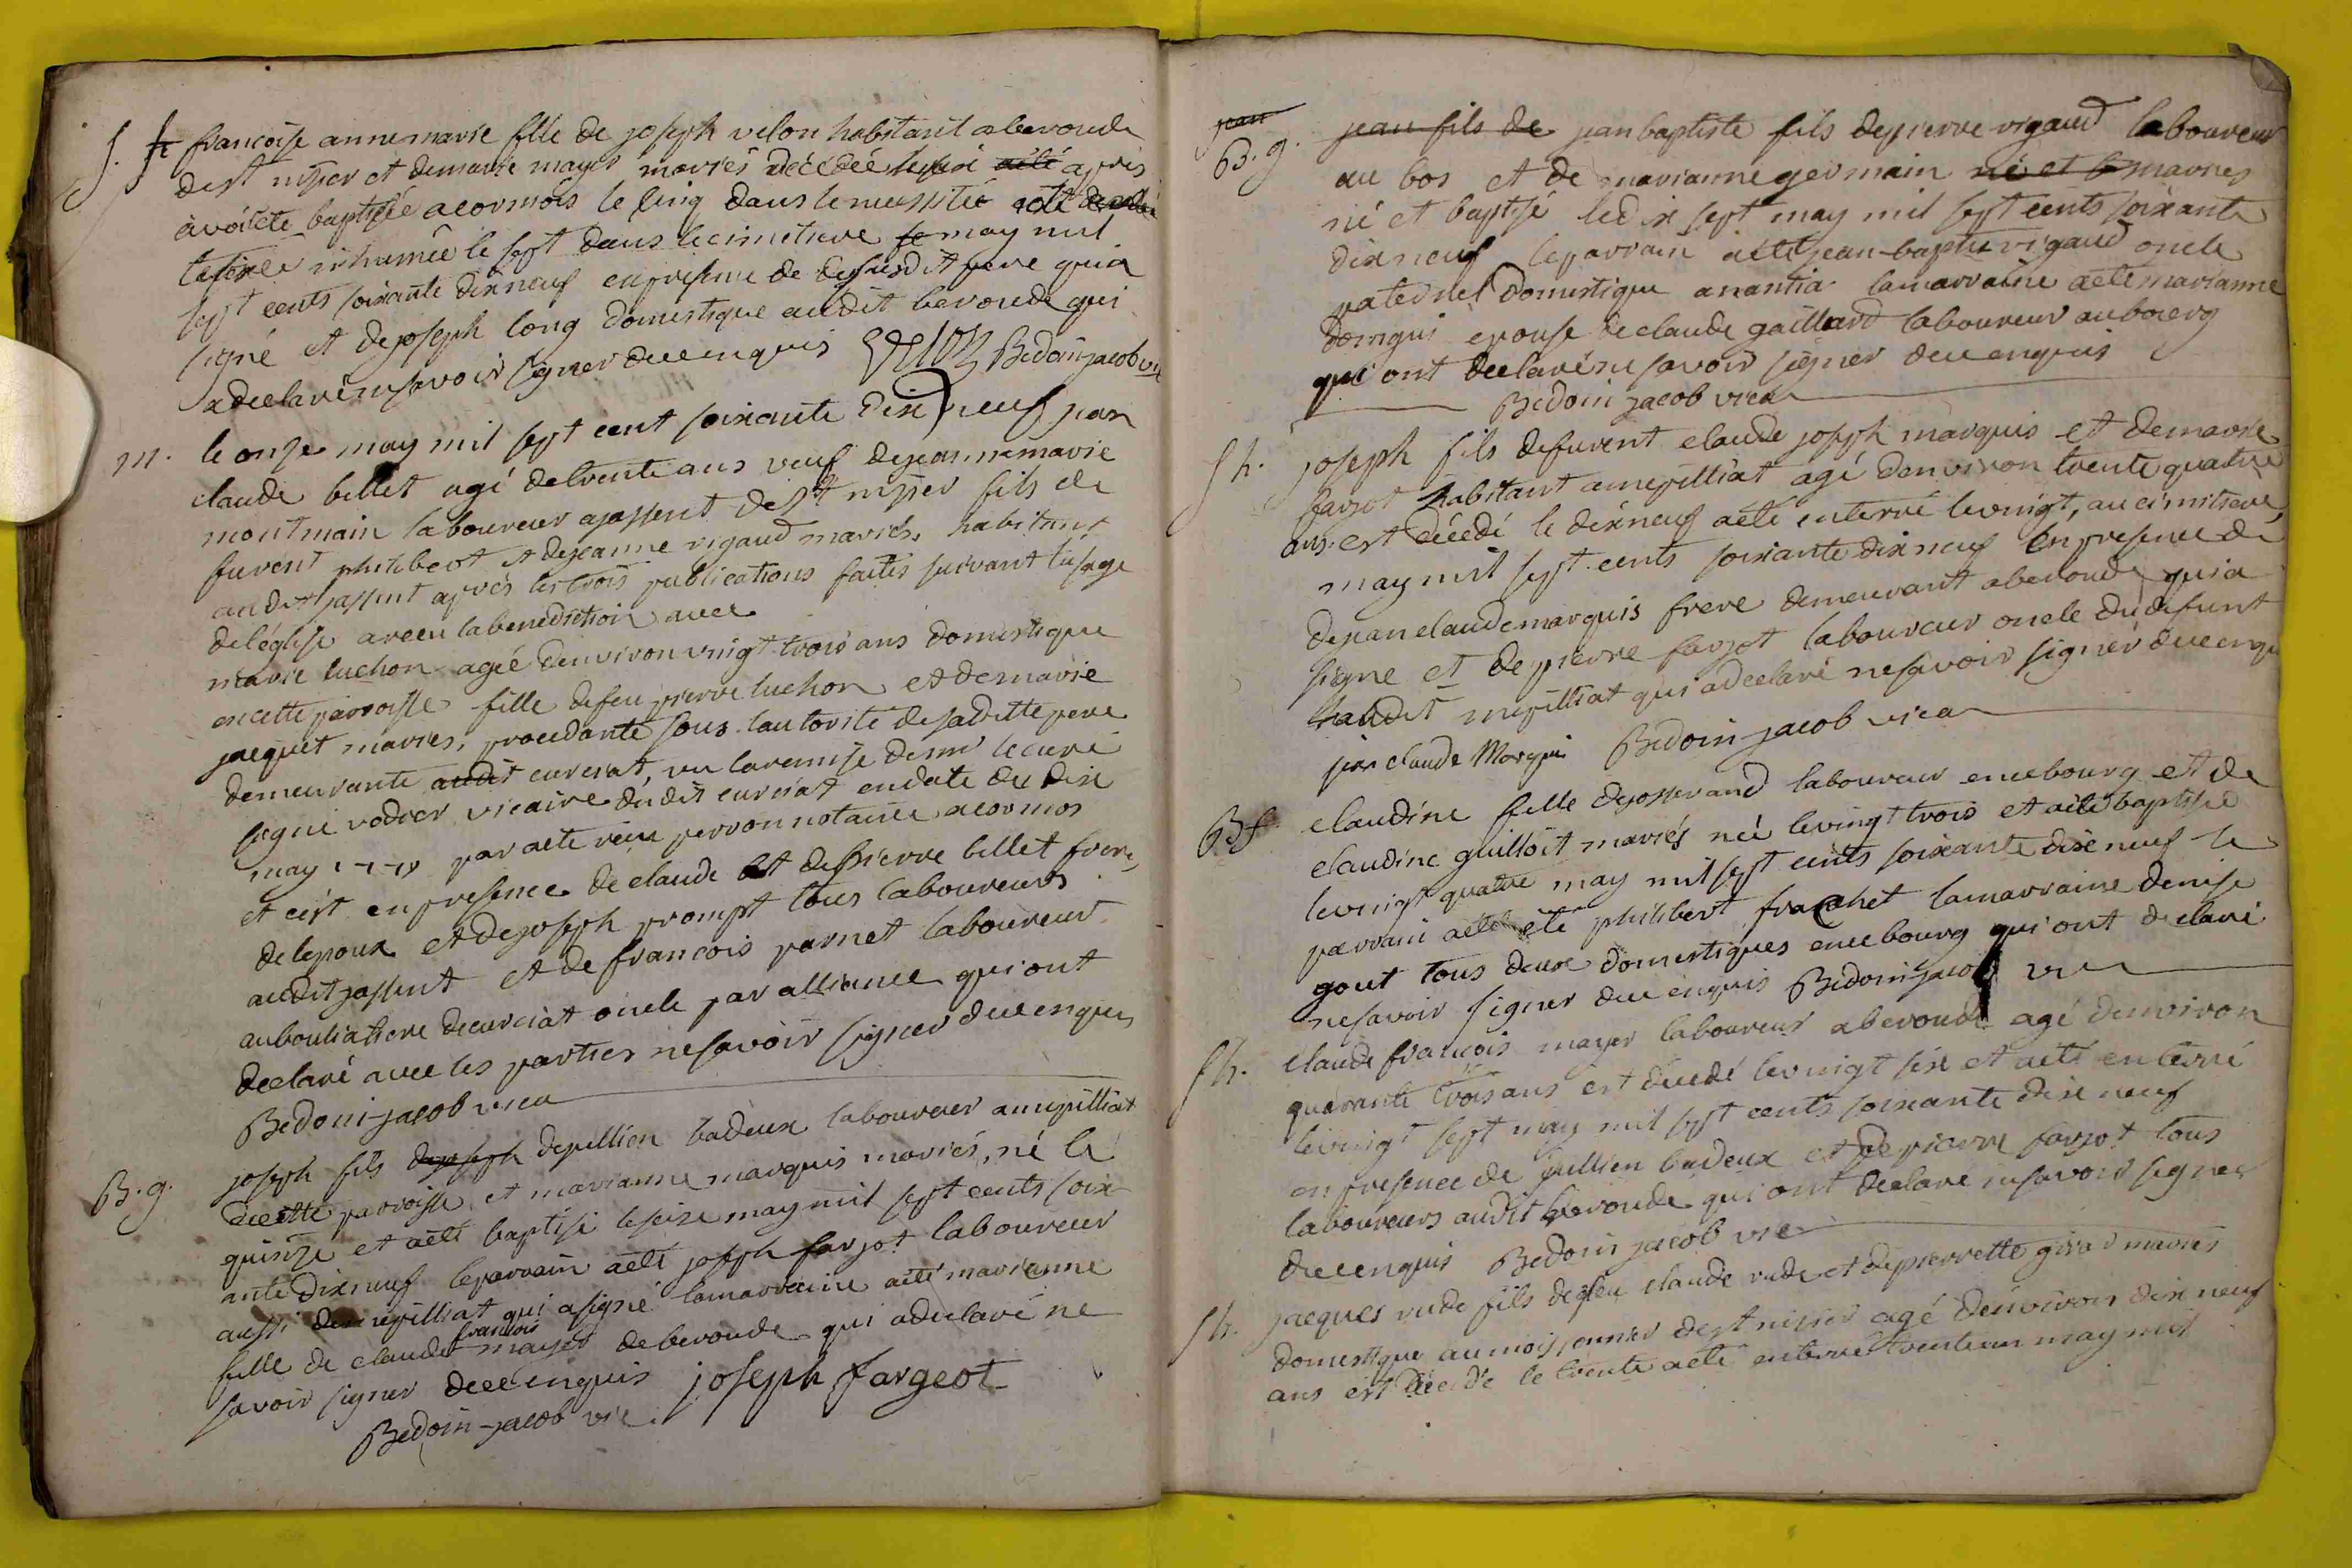 S. fr francoise anne marie fille de joseph velon habitant a beroude
de st nisier et de marie mayer mariés décédée le six aété après
àvoir eté baptisée a cormos le cinq dans le necessité
inhumée le sept dans le cimetiere may mil
sept cents soixante dixneuf en presence de dessusdit pere qui a
signé et de joseph long domestique audit beroude qui
a declaré ne savoir signer de ce enquis velon Bedoin-jacob vic
m. le onze may mil sept cent soixante dix neuf jean
claude billet agé de trente ans veuf de jeanne marie
montmain laboureur a jassent de st nisier fils de
furent philibert et de jeanne rigaud mariés, habitant
au dit jassent après les trois publications faites suivant lusage
de léglise a receu la benediction avec
marie luchon agée denviron vingt-trois ans domestique
en cette parroisse fille de feu pierre luchon et de marie
jacquet mariés, procedante sous lautorité de sa ditte pere
demeurante audit curciat, vu la remise de mr le curé
signé vodier vicaire dudit curciat en date du dix
may par acte receu perron notaire a cormos
et cest en presence de claude et de pierre billet frere
de lepoux et de joseph prompt tous laboureurs
audit jassent et de francois parnet laboureur
au bouliatiere de curciat oncle par alliance qui ont
declaré avec les parties ne savoir signer de ce enquis
Bedoin-jacob vica
B. g. joseph fils de joseph de jullien badeux laboureur a mepilliat
de cette parroisse et marianne marquis mariés, né le
quinze et aété baptisé le seize may mil sept cents soix-
ante dixneuf le parrain aété joseph farjot laboureur
aussi de mepilliat qui a signé la marraine aété marianne
fille de claude francois mayer de beroude qui a declaré ne
savoir signer de ce enquis joseph fargeot
Bedoin-jacob vic.
jean
B. g. jean fils de jean baptiste fils de pierre rigaud laboureur
au bos et de marianne germain né et b mariés
né et baptisé le dix sept may mil sept cents soixante
dixneuf le parrain aété jean-baptiste rigaud oncle
paternel domestique a nantia la marraine aété marianne
domgui epouse de claude gaillard laboureur au bourg
qui ont declaré ne savoir signer de ce enquis
Bedoin jacob vica
S h. joseph fils de furent claude joseph marquis et de marie
farjot habitant a mepilliat agé denviron trente quatre
ans est décédé le dixneuf aété enterré le vingt, au cimitiere,
may mil sept cents soixante dix neuf en presence de
de jean claude marquis frere demeurant a beroude qui a
signe et de pierre farjot laboureur oncle du defunt
audit mepilliat qui a declaré ne savoir signer de ce enqu
jean claude Marquis Bedoin-jacob vica
B f. claudine fille de josserand laboureur en ce bourg et de
claudine guilloit mariés née le vingt trois et aété baptisée
le vingt quatre may mil sept cents soixante dix neuf le
parrain aété été philibert frachet la marraine denise
gout tous deux domestiques en ce bourg qui ont declaré
ne savoir signer de ce enquis Bedoin-jacob vic
S h. claude francois mayer laboureur a beroude agé denviron
quarante trois ans est décédé le vingt six et aété enterré
le vingt sept may mil sept cents soixante dix neuf
en presence de jullien badeux et de pierre farjot tous
laboureurs audit beroude qui ont declaré ne savoir signer
de ce enquis Bedoin jacob vic
S h. jacques rude fils de feu claude rude et de pierrette girod mariés
domestique au de st nisier agé denviron dix neuf
ans est décédé le trente aété enterré trente un may mil